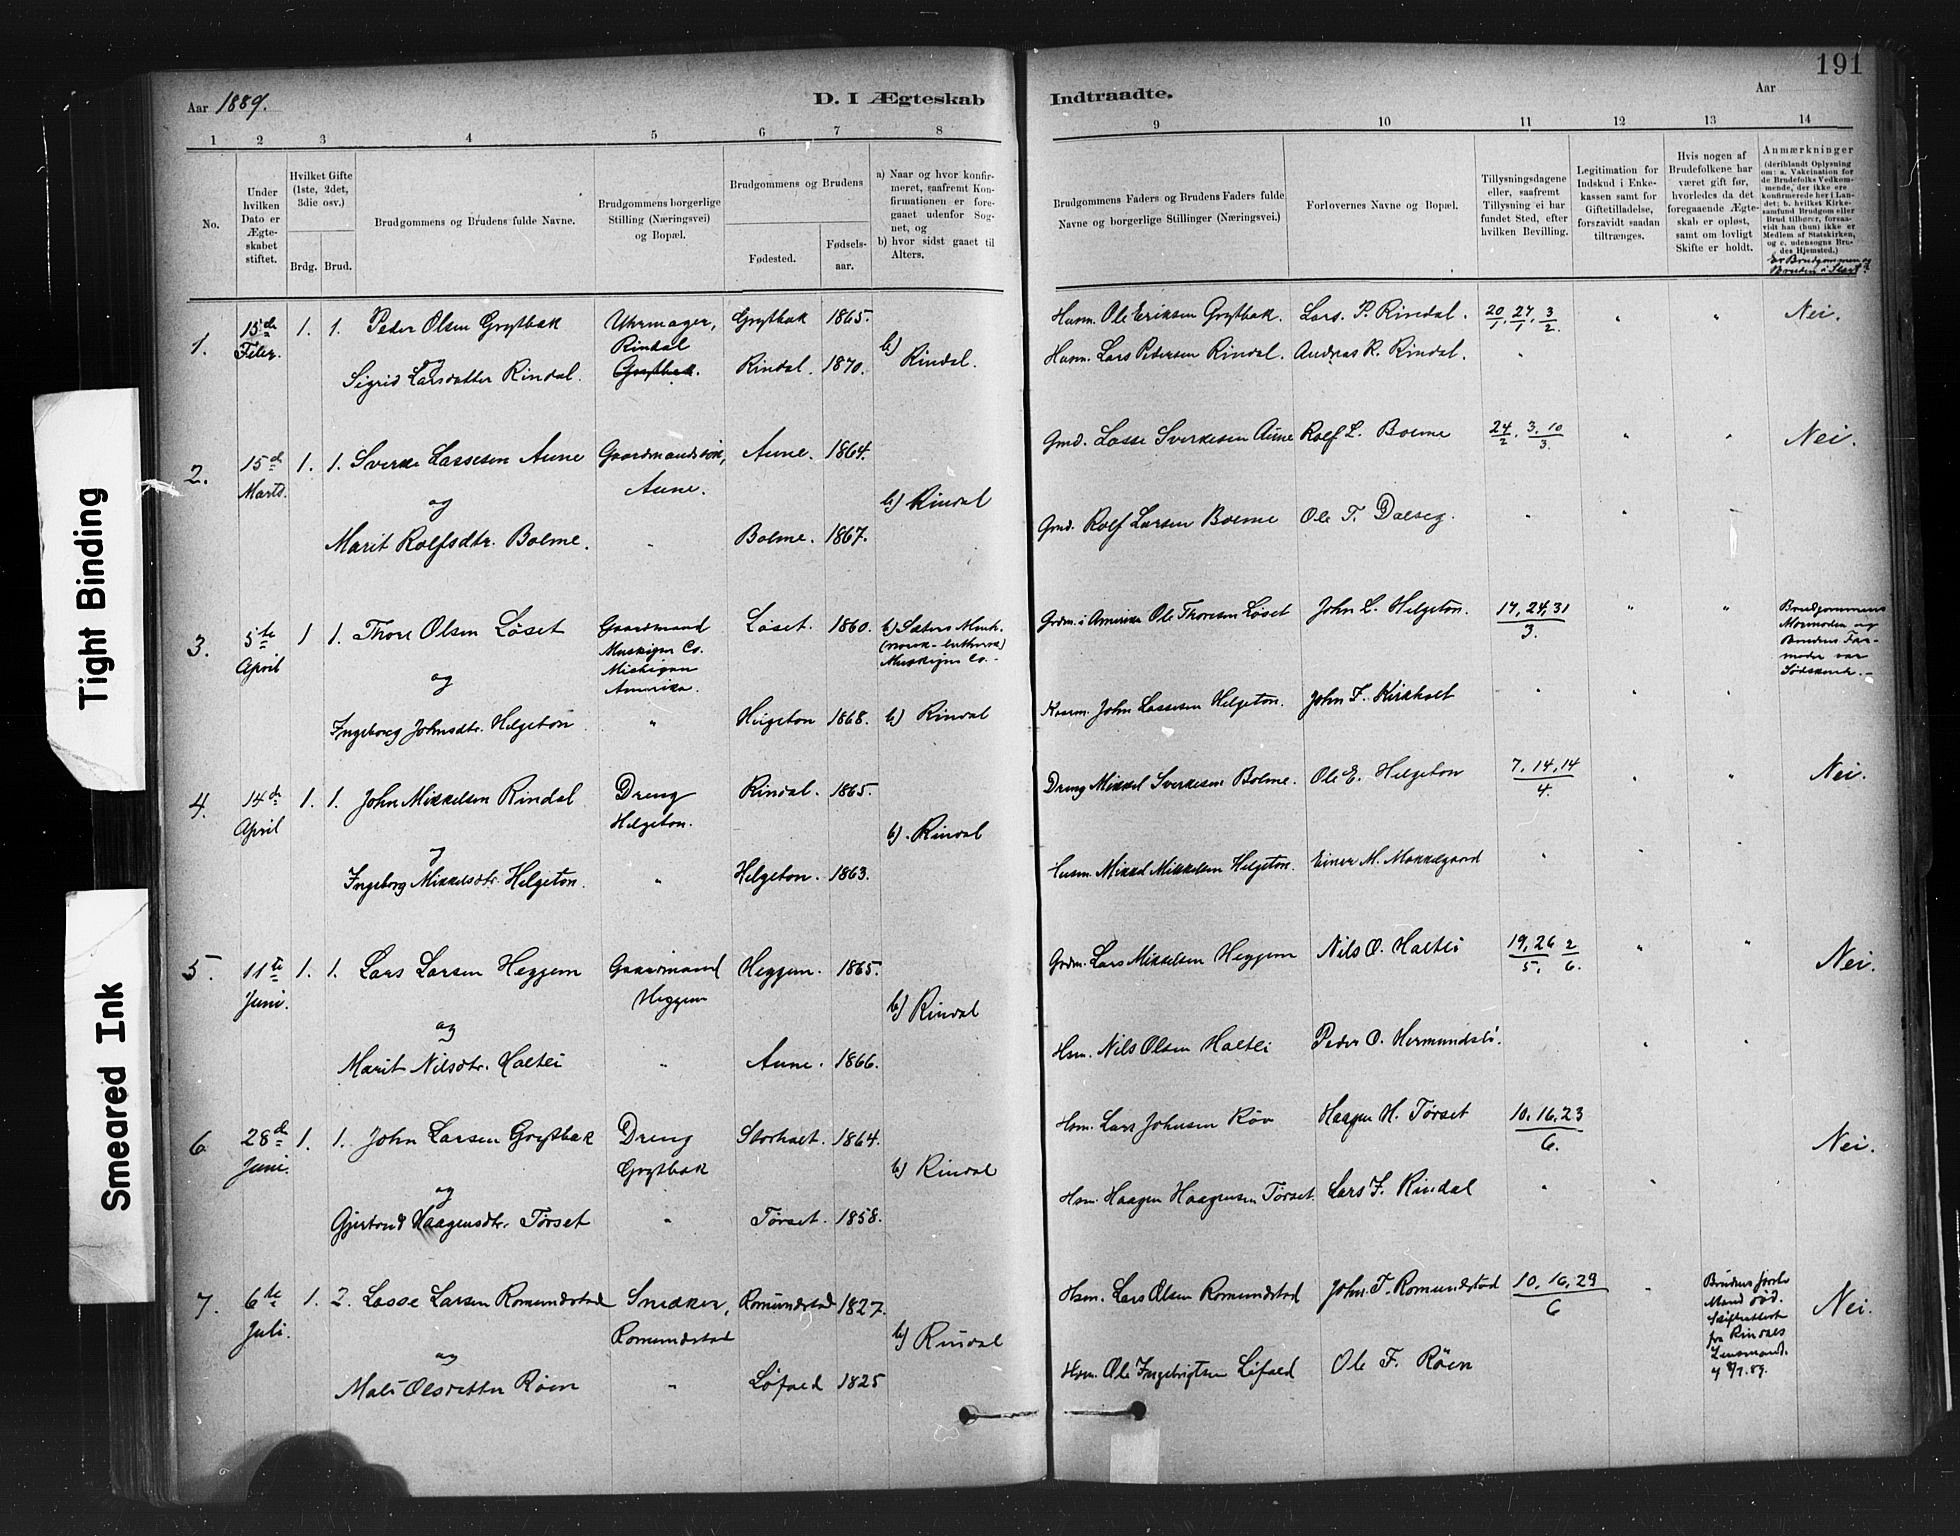 Tight Binding
Smeared Ink
191
Aar 1889. D. I Ægteskab
1 2 3 4 5 6 7 8
No.
Under hvilken Dato er Ægteskabet stiftet.
Hvilket Gifte (1ste, 2det, 3die osv.)
Brdg. Brud.
Brudgommens og Brudens fulde Navne.
Brudgommens borgerlige Stilling (Næringsvei) og Bopæl.
Brudgommens og Brudens
Fødested. Fødsels-aar.
a) Naar og hvor konfirmeret, saafremt Konfirmationen er foregaaet udenfor Sognet, og
b) hvor sidst gaaet til Alters.
1. 15de Febr. 1. 1. Peder Olsen Grytbak Uhrmager, Rindal Grytbak 1865. b) Rindal.
og
Sigrid Larsdatter Rindal. Grytbak. Rindal. 1870.
2. 15de Marts. 1. 1. Sverke Lassesen Aune Gaardmandssøn, Aune. Aune. 1864.
og b) Rindal
Marit Rolfsdtr. Bolme. " Bolme. 1867.
3. 5te April 1 1. Thore Olsen Løset Gaardmand Muskigon Co. Michigan Amerika. Løset. 1860. b) Sæters Menh. (norsk-luthersk) Muskigon Co.-
og
Ingeborg Johnsdtr. Helgeton " Helgeton 1868. b) Rindal
4. 14de April 1. 1. John Mikkelsen Rindal Dreng Helgeton. Rindal. 1865.
og b). Rindal
Ingeborg Mikkelsdtr. Helgeton. " Helgeton. 1863.
5. 11te Juni. 1. 1. Lars Larsen Heggem Gaardmand Heggem Heggem. 1865.
og b) Rindal
Marit Nilsdtr. Haltli " Aune. 1866.
6 28de Juni. 1. 1. John Larsen Grytbak Dreng Grytbak Storholt. 1864.
og b) Rindal
Gjertrud Haagensdtr. Tørset " Tørset. 1858.
7. 6te Juli. 1. 2. Lasse Larsen Romundstad Snedker, Romundstad Romundstad 1827.
og b) Rindal
Mali Olsdatter Røen " Løfald 1825
Indtraadte. Aar
9 10 11 12 13 14
Brudgommens Faders og Brudens Faders fulde Navne og borgerlige Stillinger (Næringsvei.)
Forlovernes Navne og Bopæl.
Tillysningsdagene eller, saafremt Tillysning ei har fundet Sted, efter hvilken Bevilling.
Legitimation for Indskud i Enkekassen samt for Giftetilladelse, forsaavidt saadan tiltrænges.
Hvis nogen af Brudefolkene har været gift før, hvorledes da det foregaaende Ægteskab er opløst, samt om lovligt Skifte er holdt.
Anmærkninger (deriblandt Oplysning om: a. Vakcination for de Brudefolks Vedkommende, der ikke ere konfirmerede her i Landet; b. hvilket Kirkesamfund Brudgom eller Brud tilhører, forsaavidt han (hun) ikke er Medlem af Statskirken, og c. udensogns Brudes Hjemsted.)
Er Brudgommen og Bruden i Slægt?
Husm. Ole Eriksen Grytbak. Lars. P. Rindal. 20/1, 27/1, 3/2. " " Nei.
Husm. Lars Pedersen Rindal. Andras R. Rindal. "
Gmd. Lasse Sverkesen Aune Rolf L. Bolme 24/2, 3, 10/3. " " Nei.
Gmd. Rolf Larsen Bolme Ole T. Dalseg. " "
Grdm. i Amerika Ole Thoresen Løset John L. Helgeton. 17, 24, 31/3. " " Brudgommens Mormoder og Brudens Farmoder var Sødskende.-
John Lassesen Helgeton. John F. Kirkholt " " "
Dreng Mikkel Sverkesen Bolme. Ole E. Helgeton 7, 14, 14/4. " " Nei.
Husm. Mikkel Mikkelsen Helgeton. Einer M. Mokkelgaard " " "
Grdm. Lars Mikkelsen Heggem Nils O. Haltli 19, 26/5, 2/6. " " Nei.
Hsm. Nils Olsen Haltli Peder O. Hermundsli. " "
Hsm. Lars Johnsen Røv Haagen H. Tørset 10, 16, 23/6. Nei.
Hsm. Haagen Haagensen Tørset. Lars F. Rindal " " "
Hsm. Lars Olsen Romundstad John T. Romundstad 10, 16, 29/6 " Brudens første Mand død. Skifteattest fra Rindals Lensmand. 4/7.89. Nei.
Hsm. Ole Ingebrigtsen Løfald Ole F. Røen